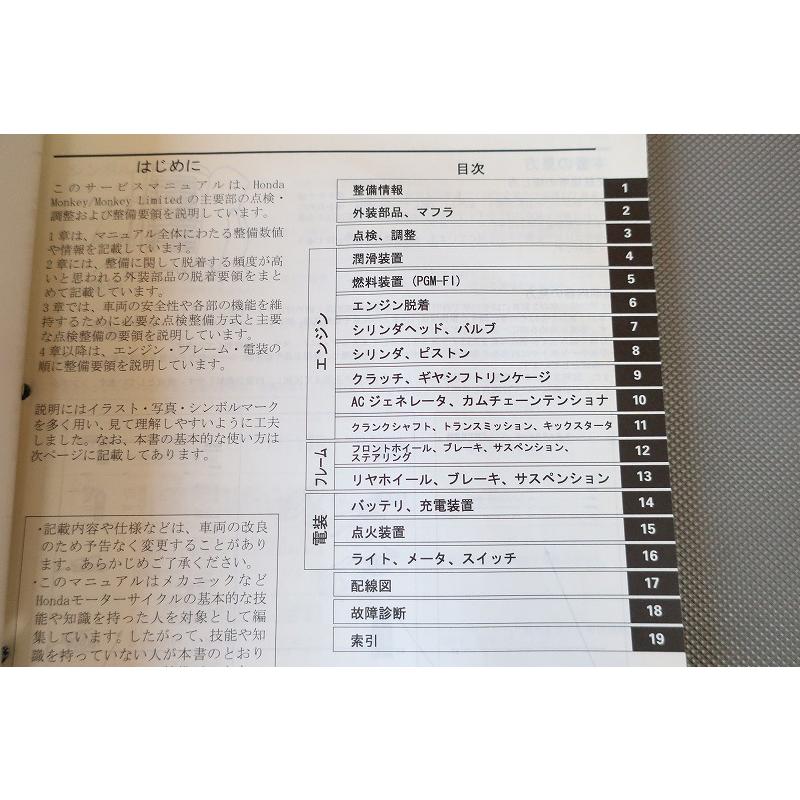 はじめに
このサービスマニュアルは、Honda
Monkey/Monkey Limited の主要部の点検・
調整および整備要領を説明しています。
1章は、マニュアル全体にわたる整備数値
や情報を記載しています。
2章には、整備に関して脱着する頻度が高
いと思われる外装部品の脱着要領をまと
めて記載しています。
3章では、車両の安全性や各部の機能を維
持するために必要な点検整備方式と主要
な点検整備の要領を説明しています。
4章以降は、エンジン・フレーム・電装の
順に整備要領を説明しています。
説明にはイラスト・写真・シンボルマーク
を多く用い、見て理解しやすいように工夫
しました。なお、本書の基本的な使い方は
次ページに記載してあります。
・記載内容や仕様などは、車両の改良
のため予告なく変更することがあり
ます。あらかじめご了承ください。
・このマニュアルはメカニックなど
Hondaモーターサイクルの基本的な技
能や知識を持った人を対象として編
集しています。したがって、技能や知
識を持っていない人が本書のとおり
目次
整備情報 1
外装部品、マフラ 2
点検、調整 3
エンジン
潤滑装置 4
燃料装置 (PGM-FI) 5
エンジン脱着 6
シリンダヘッド、バルブ 7
シリンダ、ピストン 8
クラッチ、ギヤシフトリンケージ 9
ACジェネレータ、カムチェーンテンショナ 10
クランクシャフト、トランスミッション、キックスタータ 11
フレーム
フロントホイール、ブレーキ、サスペンション、
ステアリング 12
リヤホイール、ブレーキ、サスペンション 13
電装
バッテリ、充電装置 14
点火装置 15
ライト、メータ、スイッチ 16
配線図 17
故障診断 18
索引 19